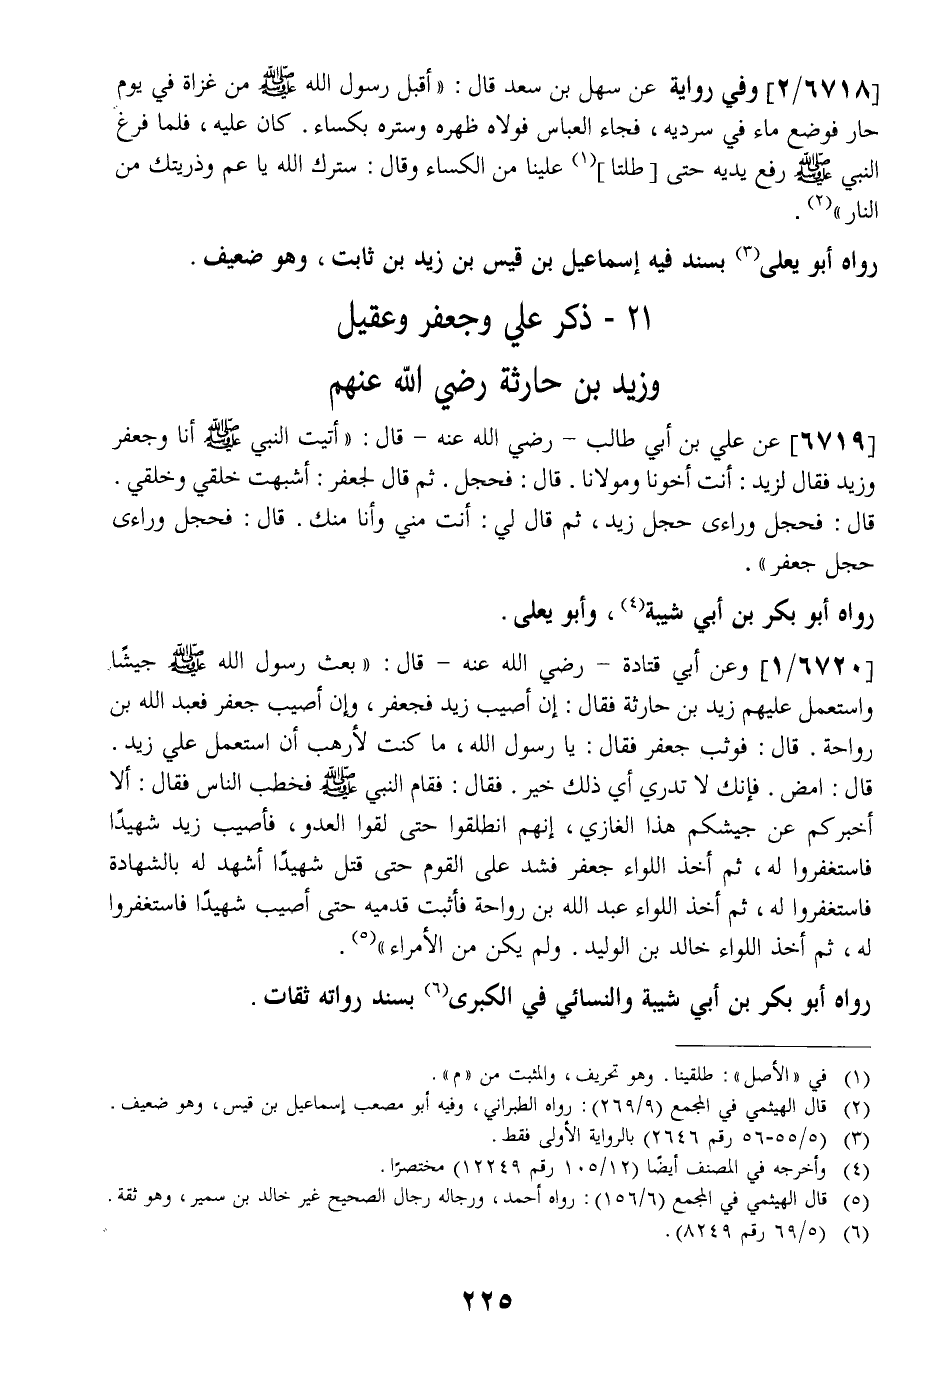 [٢/٦٧١٨] وفي رواية عن سهل بن سعد قال : « أقبل رسول الله ﷺ من غزاة في يوم
حار فوضع ماء في سرديه ، فجاء العباس فولاه ظهره وستره بكساء . كان عليه ، فلما فرغ
النبي ﷺ رفع يديه حتى [ طلتا ](١) علينا من الكساء وقال : سترك الله يا عم وذريتك من
النار »(٢) .
رواه أبو يعلى(٣) بسند فيه إسماعيل بن قيس بن زيد بن ثابت ، وهو ضعيف .
٢١ - ذكر علي وجعفر وعقيل
وزيد بن حارثة رضي الله عنهم
[٦٧١٩] عن علي بن أبي طالب - رضي الله عنه - قال : « أتيت النبي ﷺ أنا وجعفر
وزيد فقال لزيد : أنت أخونا ومولانا . قال : فحجل . ثم قال لجعفر : أشبهت خلقي وخلقي .
قال : فحجل وراءى حجل زيد ، ثم قال لي : أنت مني وأنا منك . قال : فحجل وراءى
حجل جعفر » .
رواه أبو بكر بن أبي شيبة(٤) ، وأبو يعلى .
[١/٦٧٢٠] وعن أبي قتادة - رضي الله عنه - قال : « بعث رسول الله ﷺ جيشًا
واستعمل عليهم زيد بن حارثة فقال : إن أصيب زيد فجعفر ، وإن أصيب جعفر فعبد الله بن
رواحة . قال : فوثب جعفر فقال : يا رسول الله ، ما كنت لأرهب أن استعمل علي زيد .
قال : امض . فإنك لا تدري أي ذلك خير . فقال : فقام النبي ﷺ فخطب الناس فقال : ألا
أخبركم عن جيشكم هذا الغازي ، إنهم انطلقوا حتى لقوا العدو ، فأصيب زيد شهيدًا
فاستغفروا له ، ثم أخذ اللواء جعفر فشد على القوم حتى قتل شهيدًا أشهد له بالشهادة
فاستغفروا له ، ثم أخذ اللواء عبد الله بن رواحة فأثبت قدميه حتى أصيب شهيدًا فاستغفروا
له ، ثم أخذ اللواء خالد بن الوليد . ولم يكن من الأمراء »(٥) .
رواه أبو بكر بن أبي شيبة والنسائي في الكبرى(٦) بسند رواته ثقات .
(١) في «الأصل» : طلقينا . وهو تحريف ، والمثبت من «م» .
(٢) قال الهيثمي في المجمع (٢٦٩/٩) : رواه الطبراني ، وفيه أبو مصعب إسماعيل بن قيس ، وهو ضعيف .
(٣) (٥٥/٥-٥٦ رقم ٢٦٤٦) بالرواية الأولى فقط .
(٤) وأخرجه في المصنف أيضًا (١٠٥/١٢ رقم ١٢٢٤٩) مختصرًا .
(٥) قال الهيثمي في المجمع (١٥٦/٦) : رواه أحمد ، ورجاله رجال الصحيح غير خالد بن سمير ، وهو ثقة .
(٦) (٦٩/٥ رقم ٨٢٤٩) .
٢٢٥